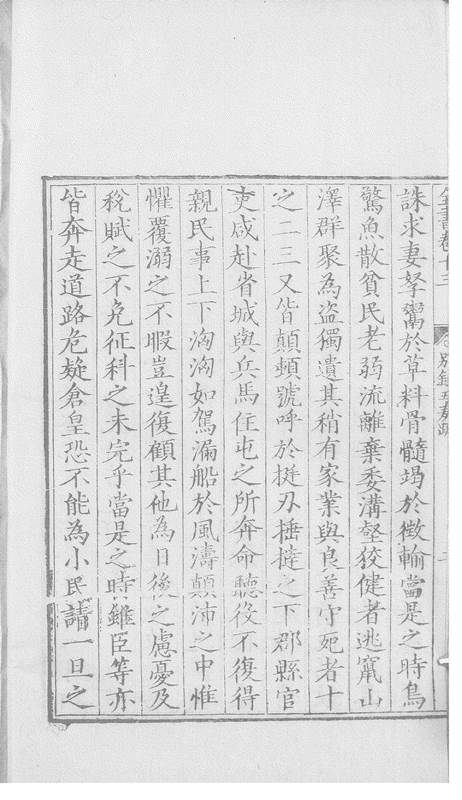 全書卷十三 別錄五奏疏
誅求妻孥鬻於草料骨髓竭於徵輸當是之時鳥
驚魚散貧民老弱流離棄委溝壑狡健者逃竄山
澤群聚為盜獨遺其稍有家業與良善守死者十
之二三又皆顛頓號呼於挺刃捶撻之下郡縣官
吏咸赴省城與兵馬住屯之所奔命聽役不復得
親民事上下洶洶如駕漏船於風濤顛沛之中惟
懼覆溺之不暇豈遑復顧其他為日後之慮憂及
稅賦之不免征科之未完乎當是之時雖臣等亦
皆奔走道路危疑倉皇恐不能為小民請一旦之